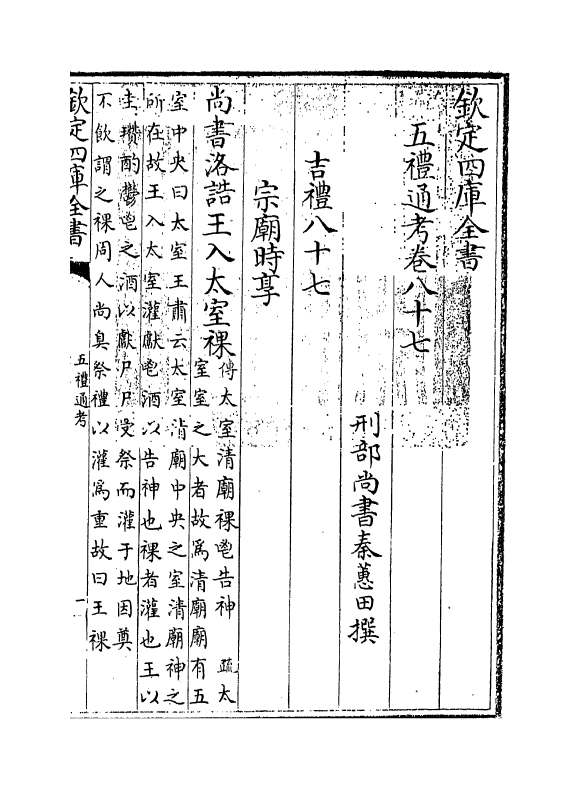 欽定四庫全書
五禮通考卷八十七
刑部尚書秦蕙田撰
吉禮八十七
宗廟時享
尚書洛誥王入太室祼
傳太室清廟祼鬯告神 疏太
室室之大者故為清廟廟有五
室中央曰太室王肅云太室清廟中央之室清廟神之
所在故王入太室灌獻鬯酒以告神也祼者灌也王以
圭瓚酌鬱鬯之酒以獻尸尸受祭而灌于地因奠
不飲謂之祼周人尚臭祭禮以灌為重故曰王祼
欽定四庫全書
五禮通考
一